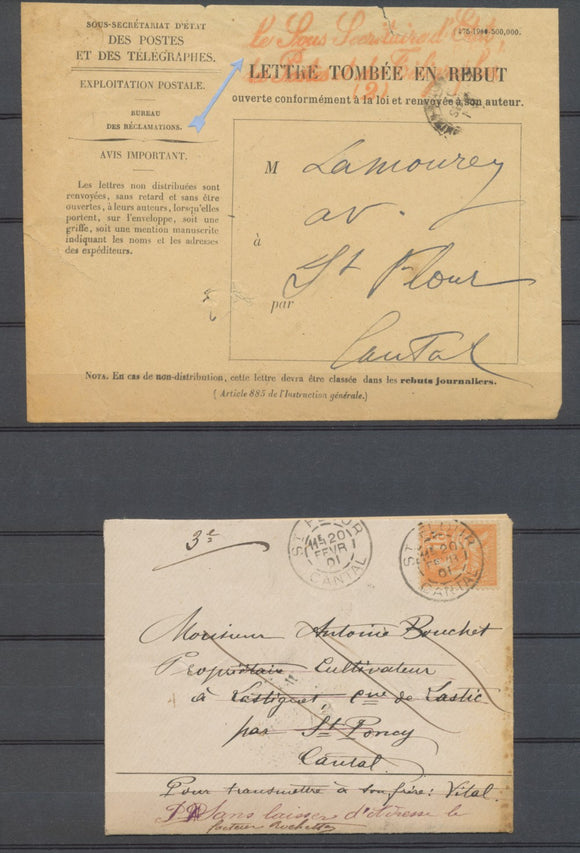 SOUS-SECRÉTARIAT D'ÉTAT
DES POSTES
ET DES TÉLÉGRAPHES.
EXPLOITATION POSTALE.
BUREAU
DES RÉCLAMATIONS.
AVIS IMPORTANT.
Les lettres non distribuées sont
renvoyées, sans retard et sans être
ouvertes, à leurs auteurs, lorsqu'elles
portent, sur l'enveloppe, soit une
griffe, soit une mention manuscrite
indiquant les noms et les adresses
des expéditeurs.
le Sous Secrétaire d'Etat,
(2)
LETTRE TOMBÉE EN REBUT
ouverte conformément à la loi et renvoyée à son auteur.
M Lamourey
av.
à St Flour
par
Cantal
NOTA. En cas de non-distribution, cette lettre devra être classée dans les rebuts journaliers.
(Article 885 de l'Instruction générale.)
3e
ST FLOUR
20
FEVR
01
CANTAL
ST FLOUR
20
FEVR
01
CANTAL
Monsieur Antoine Bouchet
Propriétaire Cultivateur
à Lastiguet, cne de Lastic
par St Poncy
Cantal
Pour transmettre à son frère: Vital.
Sans laisser d'adresse le
facteur Rochette